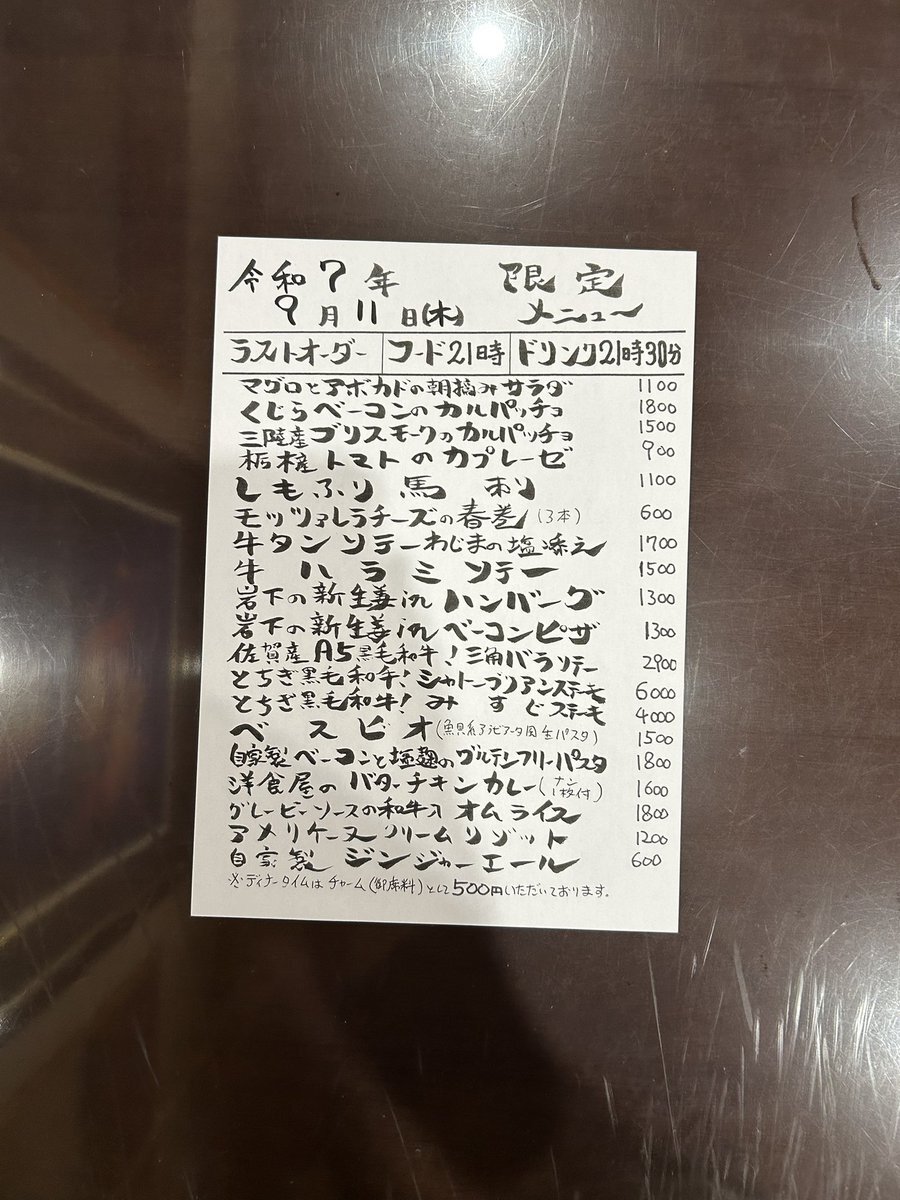 令和7年 限定
9月11日(木) メニュー
ラストオーダー フード21時 ドリンク21時30分
マグロとアボカドの朝摘みサラダ 1100
くじらベーコンのカルパッチョ 1800
三陸産ブリスモークのカルパッチョ 1500
栃木産トマトのカプレーゼ 900
しもふり馬刺し 1100
モッツァレラチーズの春巻(3本) 600
牛タンソテーわじまの塩添え 1700
牛ハラミソテー 1500
岩下の新生姜inハンバーグ 1300
岩下の新生姜inベーコンピザ 1300
佐賀産A5黒毛和牛!三角バラソテー 2900
とちぎ黒毛和牛!シャトーブリアンステーキ 6000
とちぎ黒毛和牛!みすじステーキ 4000
ベスビオ(魚貝系アラビアータ風生パスタ) 1500
自家製ベーコンと塩麹のグルテンフリーパスタ 1800
洋食屋のバターチキンカレー(ナン1枚付) 1600
グレービーソースの和牛入オムライス 1800
アメリケーヌクリームリゾット 1200
自家製ジンジャーエール 600
※ディナータイムはチャーム(御席料)として500円いただいております。